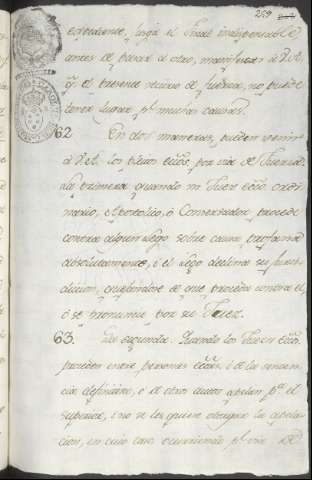 259
expediente, juzga el Fiscal indispensable
antes de pasar à otro, manifestar à V.A.
q.e el presente recurso de fuerza, no puede
tener lugar p.r muchas causas.
62 En dos maneras, pueden venir
à V.A. los Pleitos ecc.os, por via de Fuerza.
La primera quando un Juez ecc.o ordi-
nario, Apostolico, ò Conservador procede
contra algun Lego sobre causa profana
absolutamente, i el Lego declina su Juris-
diccion, quejandose de que proceda contra el,
ò se pronuncie por su Juez.
63. La segunda. Quando los Jueces ecc.os
proceden entre personas ecc.as, i de la senten-
cia definitiva, ò de otros autos apelan p.a el
superior, i no se les quiere otorgar la apela-
cion, en cuio caso ocurriendo p.r via de